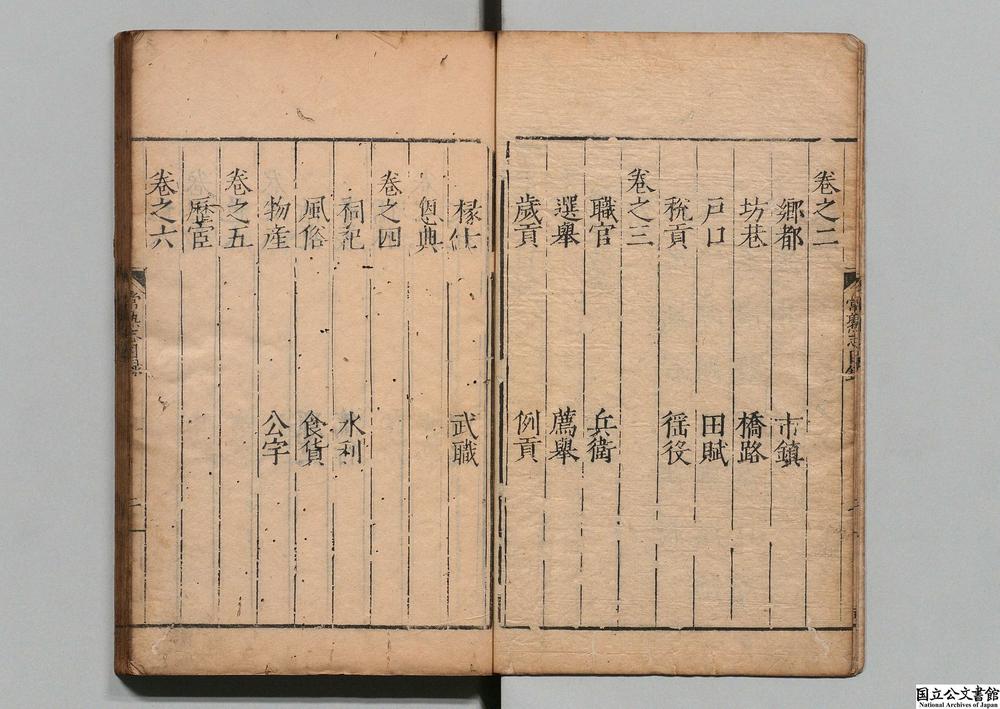 卷之二
鄉都 市鎮
坊巷 橋路
戶口 田賦
稅貢 徭役
卷之三
職官 兵衛
選舉 薦舉
歲貢 例貢
椽仕 武職
恩典
卷之四
祠祀 水利
風俗 食貨
物産 公宇
卷之五
歷宦
卷之六
常熟志目錄
常熟志目錄
国立公文書館
National Archives of Japan